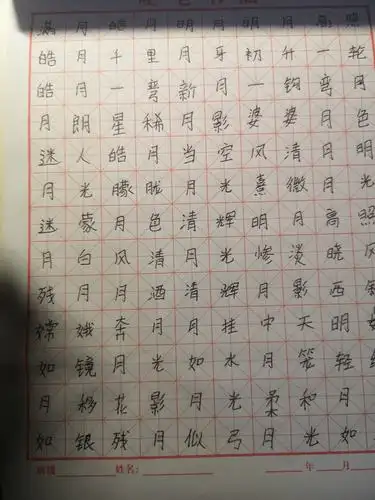 满月皓月明月明月高照
皓月千里月牙初升一轮
皓月一弯新月一钩弯月
月朗星稀月影婆娑月色
迷人皓月当空风清月明
月光朦胧月光熹微月光
迷蒙月色清辉明月高照
月白风清月光惨淡晓风
残月月洒清辉月影西斜
嫦娥奔月月挂中天明
如镜月光如水月笼轻
月移花影月光柔和月
如银残月似弓月光如
班级 姓名: 年 月